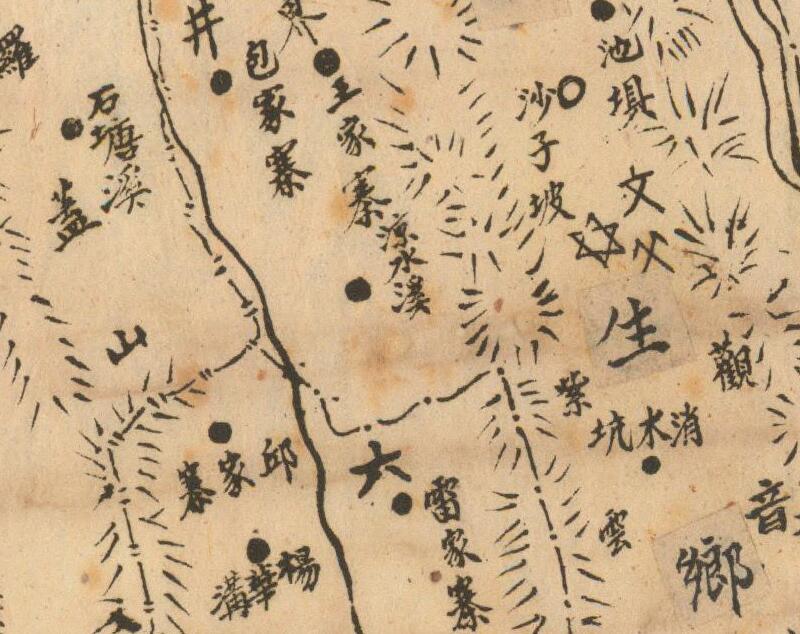 羅
井
界
包家寨
王家寨
石塘溪
蓋
涼水溪
沙子坡
池壩
文
生
山
紫
觀
消水坑
邱家寨
六
雷家寨
雲
音
鄉
楊華溝